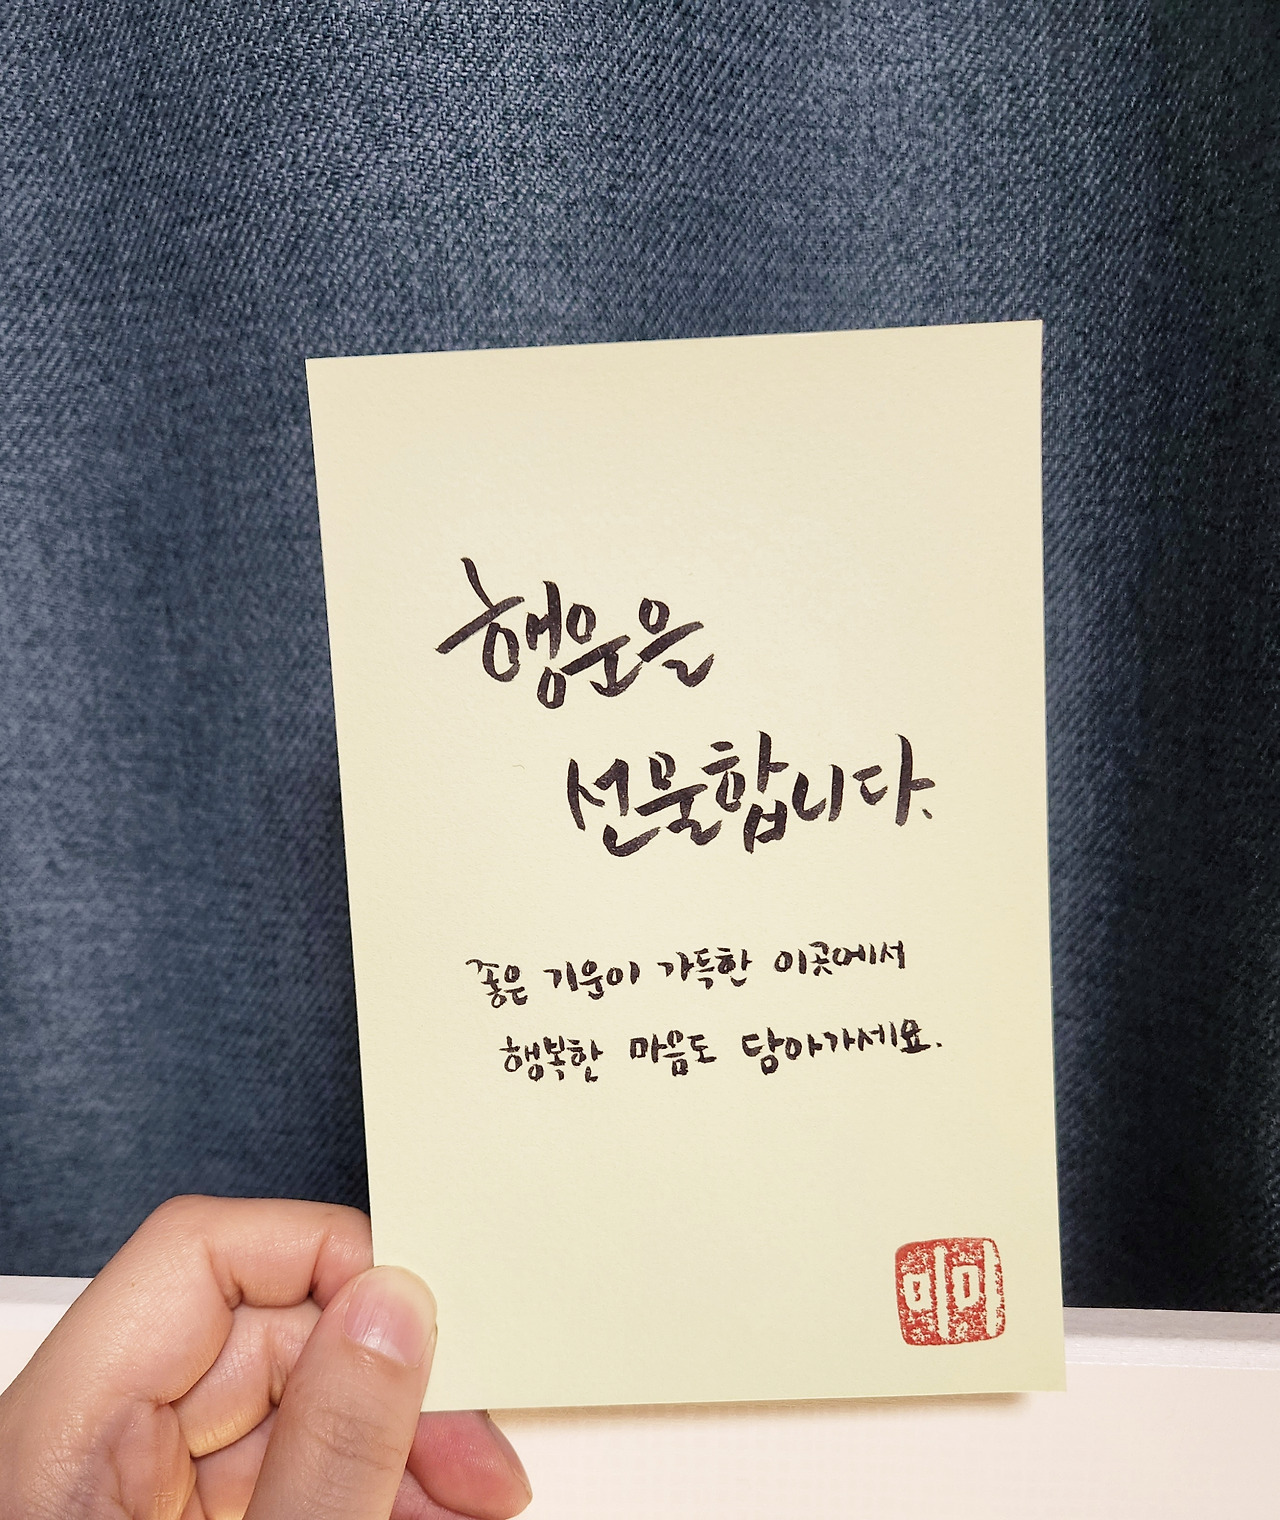 행운을
선물합니다.
좋은 기운이 가득한 이곳에서
행복한 마음도 담아가세요.
미미